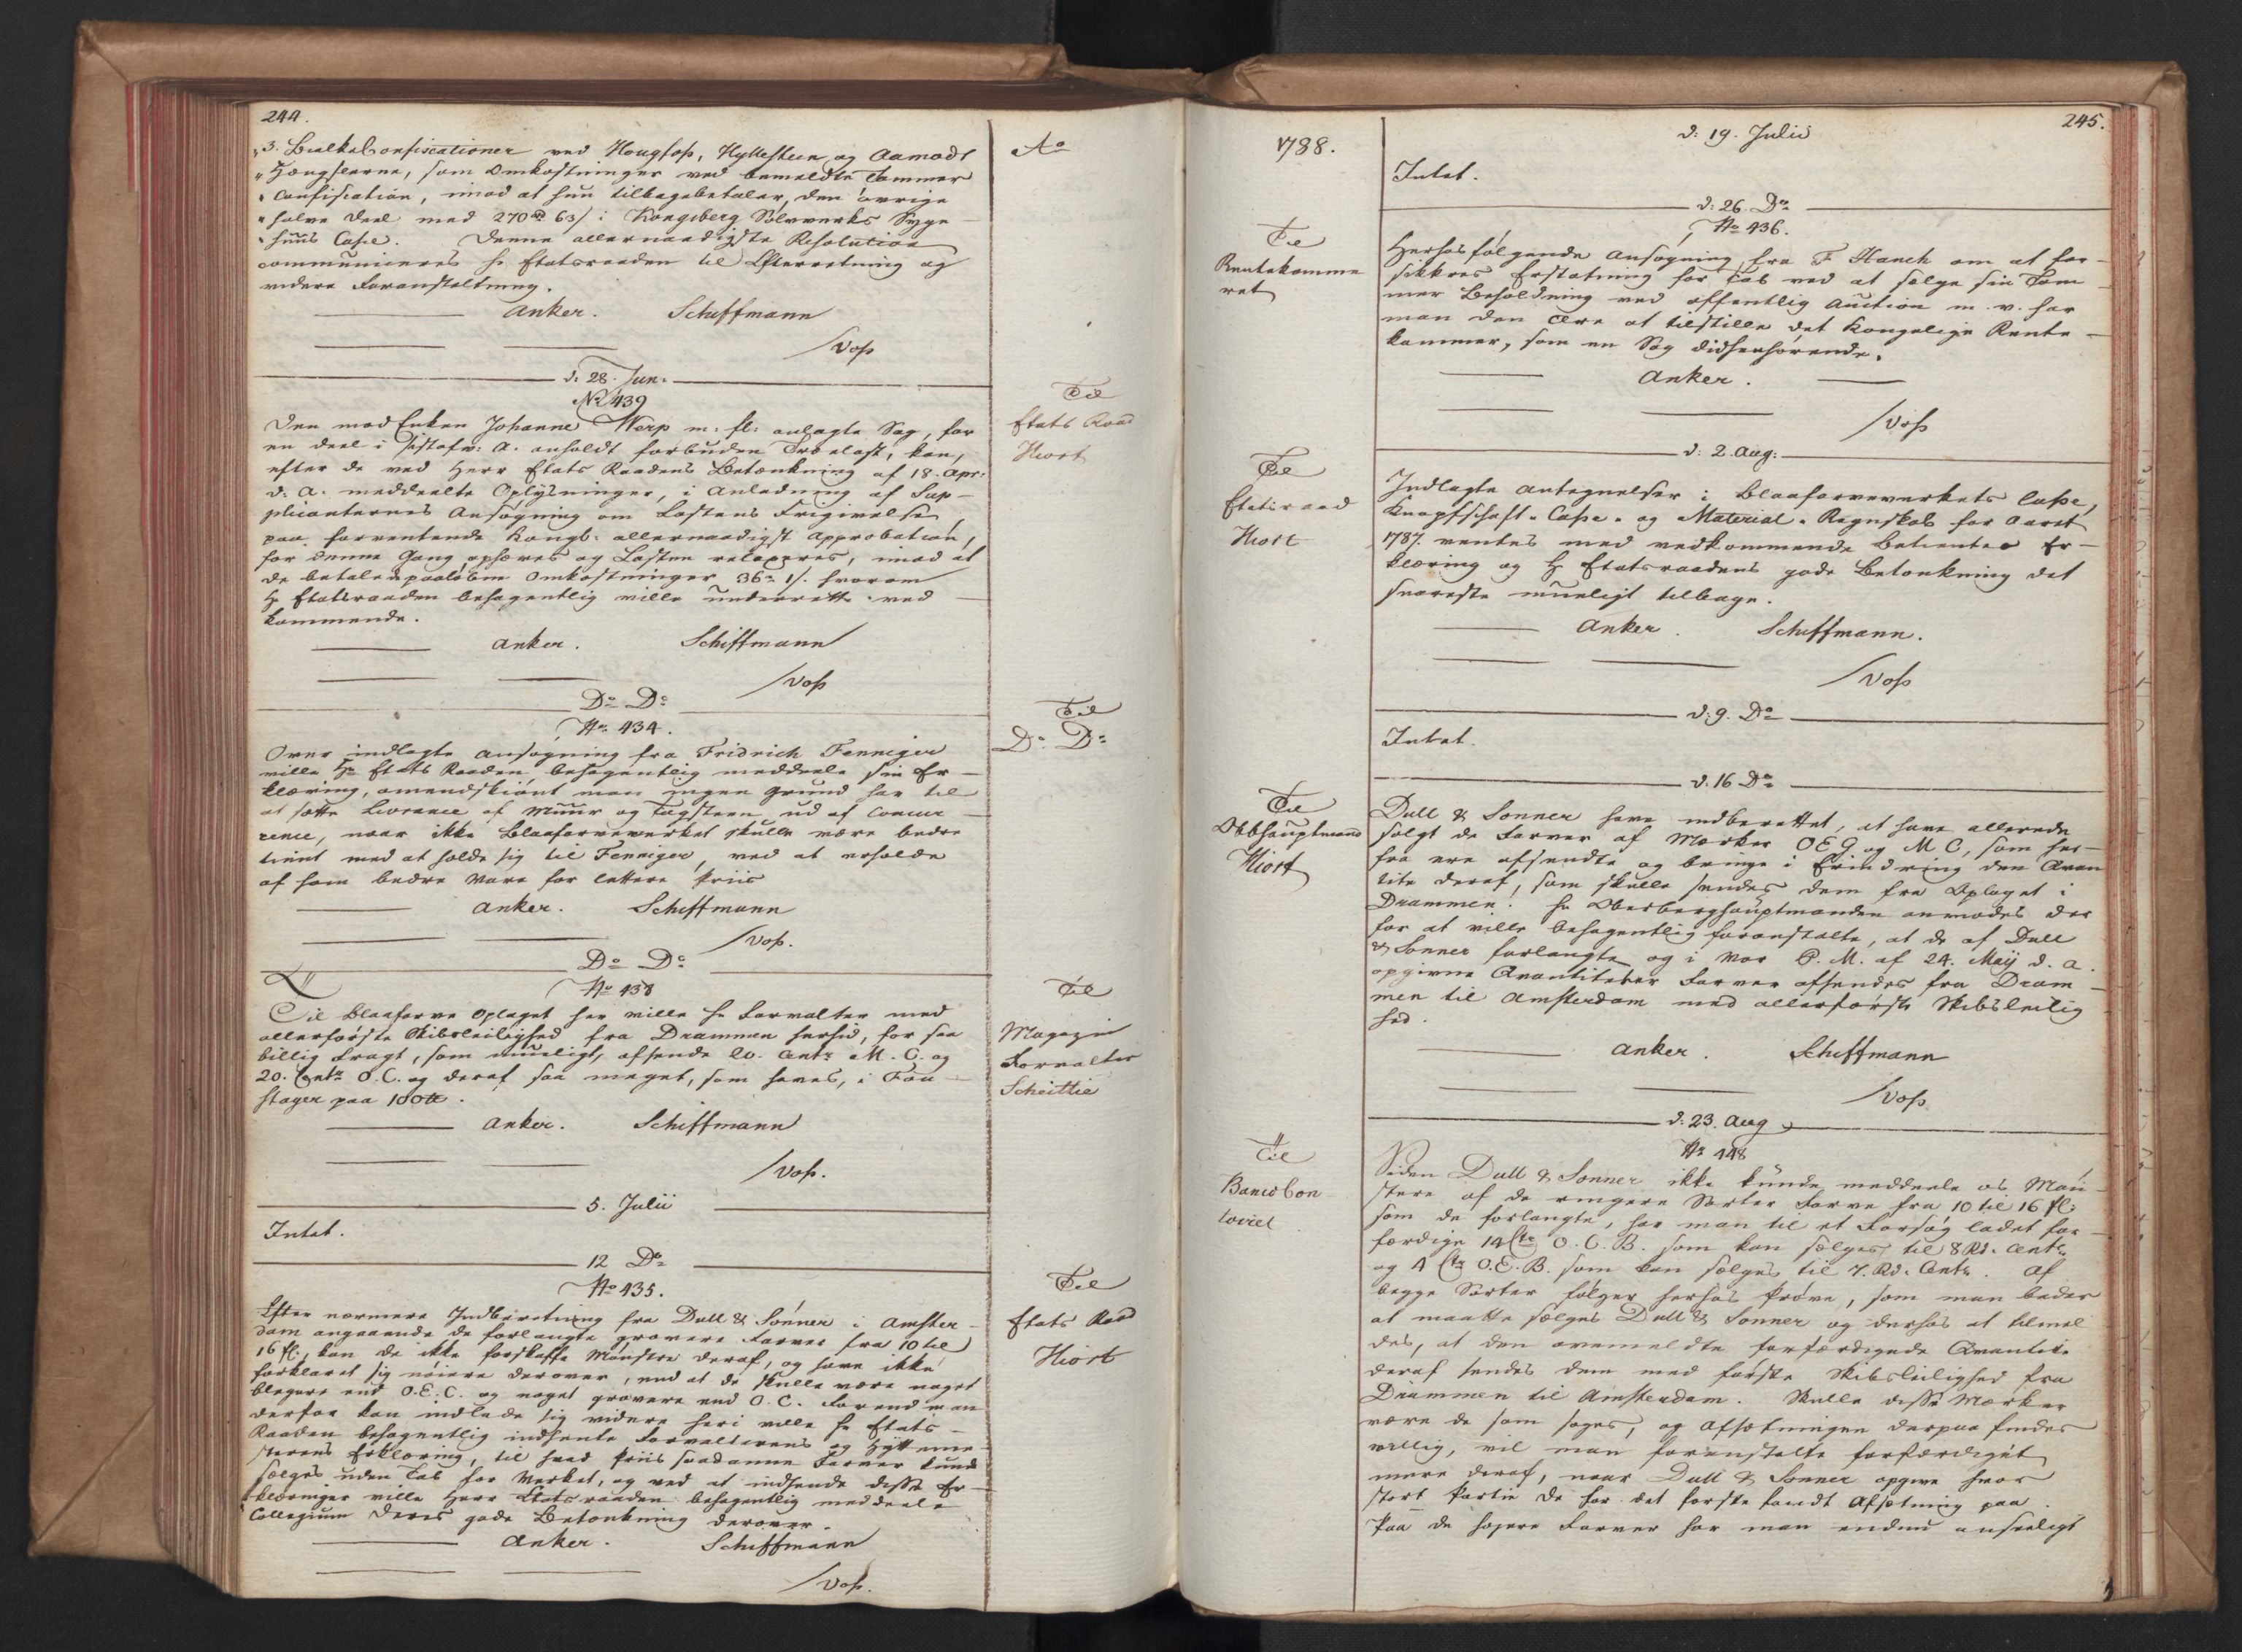 244.
Ao
"3. Bielke Confiscationer ved Hougfos, Hyllesteen og Aamodt
" Hængslerne, som Omkostninger ved bemeldte Tømmer
" Confiscation, imod at hun tilbagebetaler, den øvrige
" halve Deel med 270 rd 63 s i Kongsberg Sølvverks Syge
" huus Casse. Denne allernaadigste Resolution
communiceres Hr Etatsraaden til Efterretning og
videre Foranstaltning.
Anker. Schiffmann
/Voss
d. 28. Jun.
No 439
Til
Etats Raad
Hiort
Den mod Enken Johanne Werp m: fl: anlagte Sag, for
en deel i sidstafv: A. anholdt forbuden Trælast, kan,
efter de ved Herr Etats Raadens Betænkning af 18. Apr:
d: A. meddeelte Oplysninger, i Anledning af Sup-
plicanternes Ansøgning om Lastens Frigivelse
paa forventende Kongl: allernaadigst Approbation,
for denne Gang ophæves og Lasten relaxeres, imod at
de betale paaløbne Omkostninger 36 1 s. hvorom
Hr Etatsraaden behagentlig ville underrette ved-
kommende.
Anker. Schiffmann
/Voss
Do Do
No 434.
Til
Do Do
Over indlagte Ansøgning fra Fridrich Fenniger
ville Hr Etats Raaden behagentlig meddeele sin Er-
klæring, omendskiønt man ingen Grund har til
at sætte Leverance af Muur og Tagsteen ud af Concur-
rence, naar ikke Blaafarveverket skulle være bedre
tient med at holde sig til Fenniger, ved at erholde
af ham bedre Vare for lettere Priis
Anker. Schiffmann
/Voss.
Do Do
No 438
Til
Magazin
Forvalter
Scheitlie
Til Blaafarve Oplaget her ville Hr Forvalter med
allerførste Skibsleilighed fra Drammen hertid, for saa
billig Fragt, som mueligt, afsende 20. Centr M. C. og
20. Centr O. C. og deraf saa meget, som haves, i Fou-
stager paa 100 ℔.
Anker. Schiffmann
/Voss.
5. Julii
Intet.
12 Do
No 435.
Til
Etats Raad
Hiort
Efter nærmere Indberetning fra Dull & Sønner i Amster-
dam angaaende de forlangte grovere Farver fra 10 til
16 fl., kan de ikke forskaffe Mønstre deraf, og have ikke
forklaret sig nøiere derover, end at de skulle være noget
blegere end O. E. C. og noget grovere end O. C. Forend man
derfor kan indlade sig videre heri ville Hr Etats-
Raaden behagentlig indhente Forvalterens og Hytteme-
sterens Erklæring, til hvad Priis saadanne Farver kunde
sælges uden Tab for Verket, og ved at indsende disse Er-
klæringer ville Herr Etatsraaden behagentlig meddeele
Collegium Deres gode Betænkning derover.
Anker. Schiffmann
/Voss.
1788.
245.
d: 19. Julii
Intet.
d: 26. Do
No 436.
Til
Rentekamme
ret
Herhos følgende Ansøgning fra F Hanch om at for-
sikkres Erstatning for Tab ved at sælge sin Tøm-
mer Beholdning ved offentlig Auction m. v. har
man den Ære at tilstille det Kongelige Rente-
kammer, som en Sag didhenhørende.
Anker.
/Voss
d: 2. Aug:
Til
Etatsraad
Hiort
Indlagte Antegnelser i Blaafarveverkets Casse,
Knapschaft-Casse- og Material-Regnskab for Aaret
1787. ventes med vedkommende betientes Er-
klæring og Hr Etatsraadens gode Betænkning det
snareste mueligt tilbage.
Anker. Schiffmann.
/Voss
d: 9. Do
Intet.
d. 16 Do
Til
Obbhauptmand
Hiort
Dull & Sønner have indberettet, at have allerede
solgt de Farver af Mærker O E G og M C, som her-
fra ere afsendte og bringe i Erindring den Qvan
titet deraf, som skulle sendes dem fra Oplaget i
Drammen. Hr Oberberghauptmanden anmodes der
for at ville behagentlig foranstalte, at de af Dull
& Sønner forlangte og i vor P. M. af 24. Maij d. A.
opgivne Qvantiteter Farver afsendes fra Dram-
men til Amsterdam med allerførste Skibsleilig
hed.
Anker. Schiffmann
/Voss
d: 23. Aug
No 448
Til
Banco Con
toiret
Siden Dull & Sønner ikke kunde meddeele os Møn-
stere af de ringere Sorter Farve fra 10 til 16 fl:
som de forlangte, har man til et Forsøg ladet for-
færdige 14 Ctr O. C. B. som kan sælges til 8 Rd. Centr
og 4 Ctr O. E. B. som kan sælges til 7. Rd. Centr. Af
begge Sorter følger herhos Prøve, som man beder
at maatte sælges Dull & Sønner og derhos at tilmel
des, at den ovenmeldte forfærdigede Qvantitet
deraf sendes dem med første Skibsleilighed fra
Drammen til Amsterdam. Skulle disse Mærker
være de som søges, og Afsætningen derpaa findes
villig, vil man foranstalte forfærdiget
mere deraf, naar Dull & Sønner opgive hvor
stort Partie de for det første fandt Afsætning paa.
Paa de høiere Farver har man endnu anseeligt